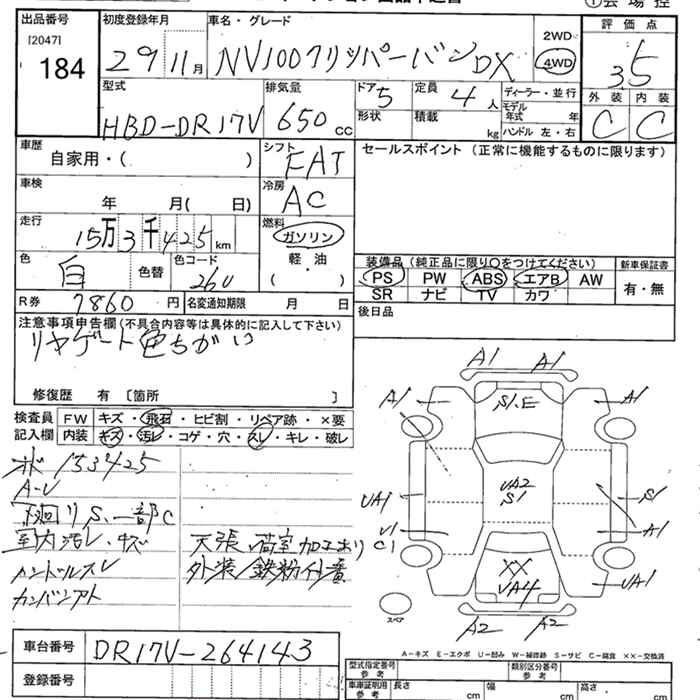 出品番号
[2047]
184
初度登録年月
29 11月
車名・グレード
NV100クリッパーバン DX
2WD
4WD
評価点
3.5
外装 内装
C C
型式
HBD-DR17V
排気量
650 cc
ドア 5
形状
定員 4人
積載 kg
ディーラー・並行
モデル年式 年
ハンドル 左・右
車歴
自家用・( )
シフト
FAT
セールスポイント(正常に機能するものに限ります)
車検
年 月( 日)
冷房
AC
走行
15万3千425km
燃料
ガソリン
軽・油
( )
色
白
色替
色コード
26U
装備品(純正品に限り○をつけてください)
PS PW ABS エアB AW
SR ナビ TV カワ
新車保証書
有・無
R券
7860円
名変通知期限 月 日
後日品
注意事項申告欄(不具合内容等は具体的に記入して下さい)
リヤゲート色ちがい
修復歴 有 [箇所 ]
検査員
記入欄
FW キズ・飛石・ヒビ割・リペア跡・×要
内装 キズ・汚レ・コゲ・穴・スレ・キレ・破レ
153425
A-U
下廻リS、一部C
室内汚レ・キズ
ハンドルスレ
カンバンアト
天張、荷室加工あり
外装/鉄粉付着
A1 A1
A1 S1.E A1
UA1 UA2 S1 S1
U1 C1 A1
XX UA4 UA1
A2 A2
スペア
A-キズ E-エクボ U-凹み W-補修跡 S-サビ C-腐食 ××-交換済
車台番号
DR17V-264143
登録番号
型式指定番号
参考
類別区分番号
参考
車庫証明用
参考
長さ cm
幅 cm
高さ cm